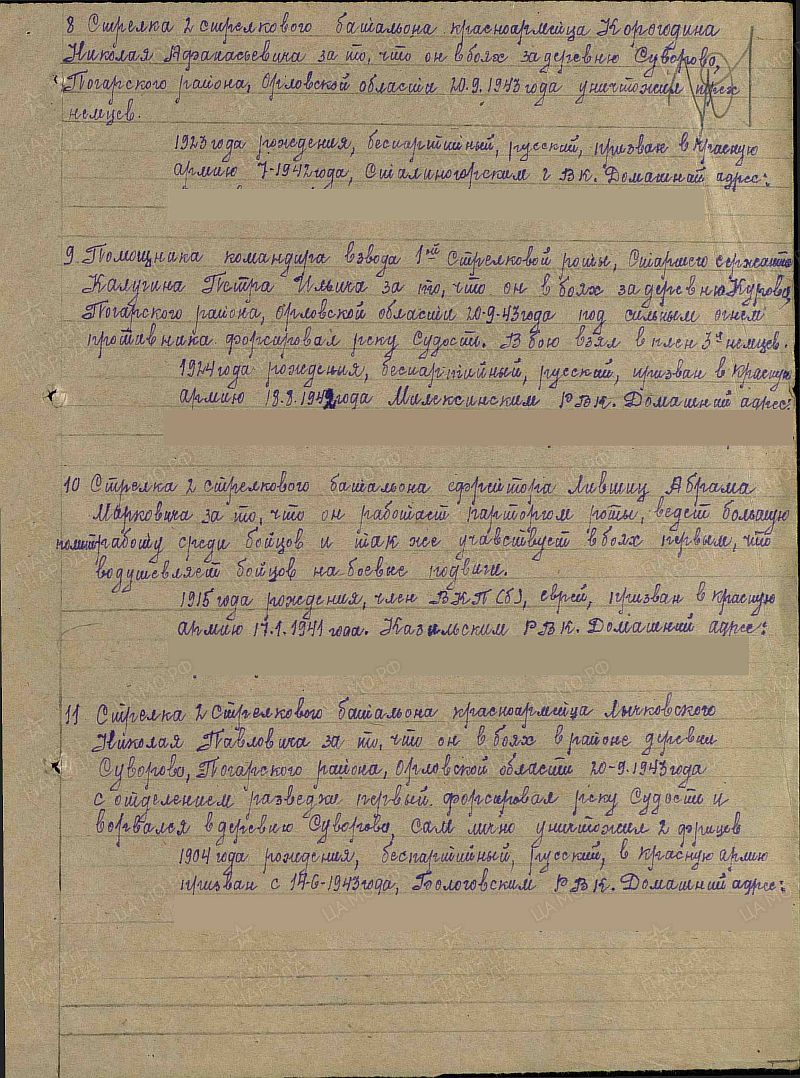 8 Стрелка 2 стрелкового батальона красноармейца Корогодина
Николая Афанасьевича за то, что он в боях за деревню Суворово,
Погарского района, Орловской области 20.9.1943 года уничтожил трех
немцев.
1923 года рождения, беспартийный, русский, призван в Красную
армию 7-1942 года, Сталиногорским г ВК. Домашний адрес:
9 Помощника командира взвода 1ой Стрелковой роты, Старшего сержанта
Калугина Петра Ильича за то, что он в боях за деревню
Погарского района, Орловской области 20-9-43 года под сильным огнем
противника форсировал реку Судость. В бою взял в плен 3х немцев.
1924 года рождения, беспартийный, русский, призван в Красную
армию 18.8.1942 года РВК. Домашний адрес:
10 Стрелка 2 стрелкового батальона ефрейтора Лившиц Абрама
Марковича за то, что он работает парторгом роты, ведет большую
политработу среди бойцов и так же учавствует в боях первым, что
водушевляет бойцов на боевые подвиги.
1915 года рождения, член ВКП(б), еврей, призван в Красную
армию 17.1.1941 года. РВК. Домашний адрес:
11 Стрелка 2 Стрелкового батальона красноармейца Лычковского
Николая Павловича за то, что он в боях в районе деревни
Суворово, Погарского района, Орловской области 20-9.1943 года
с отделением разведки первый форсировал реку Судость и
ворвался в деревню Суворово, сам лично уничтожил 2 фрицев
1904 года рождения, беспартийный, русский, в Красную армию
призван с 14-6-1943 года, Бологовским РВК. Домашний адрес:
ПАМЯТЬ НАРОДА
ЦАМО.РФ